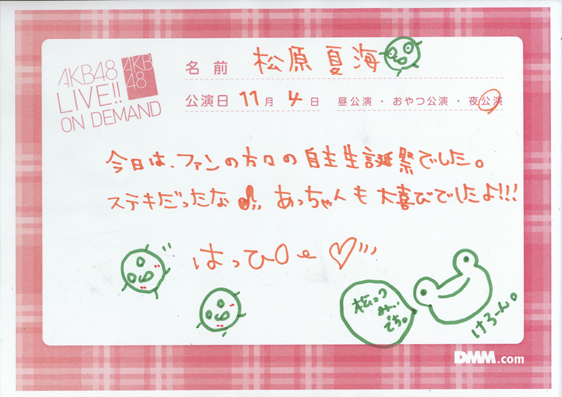 AKB48
LIVE!!
ON DEMAND
AKB
48
名前 松原夏海
公演日 11月 4日 昼公演・おやつ公演・夜公演
今日は、ファンの方々の自主生誕祭でした。
ステキだったな♪ あっちゃんも大喜びでしたよ!!!
はっぴ
でち。
けろーん。
DMM.com